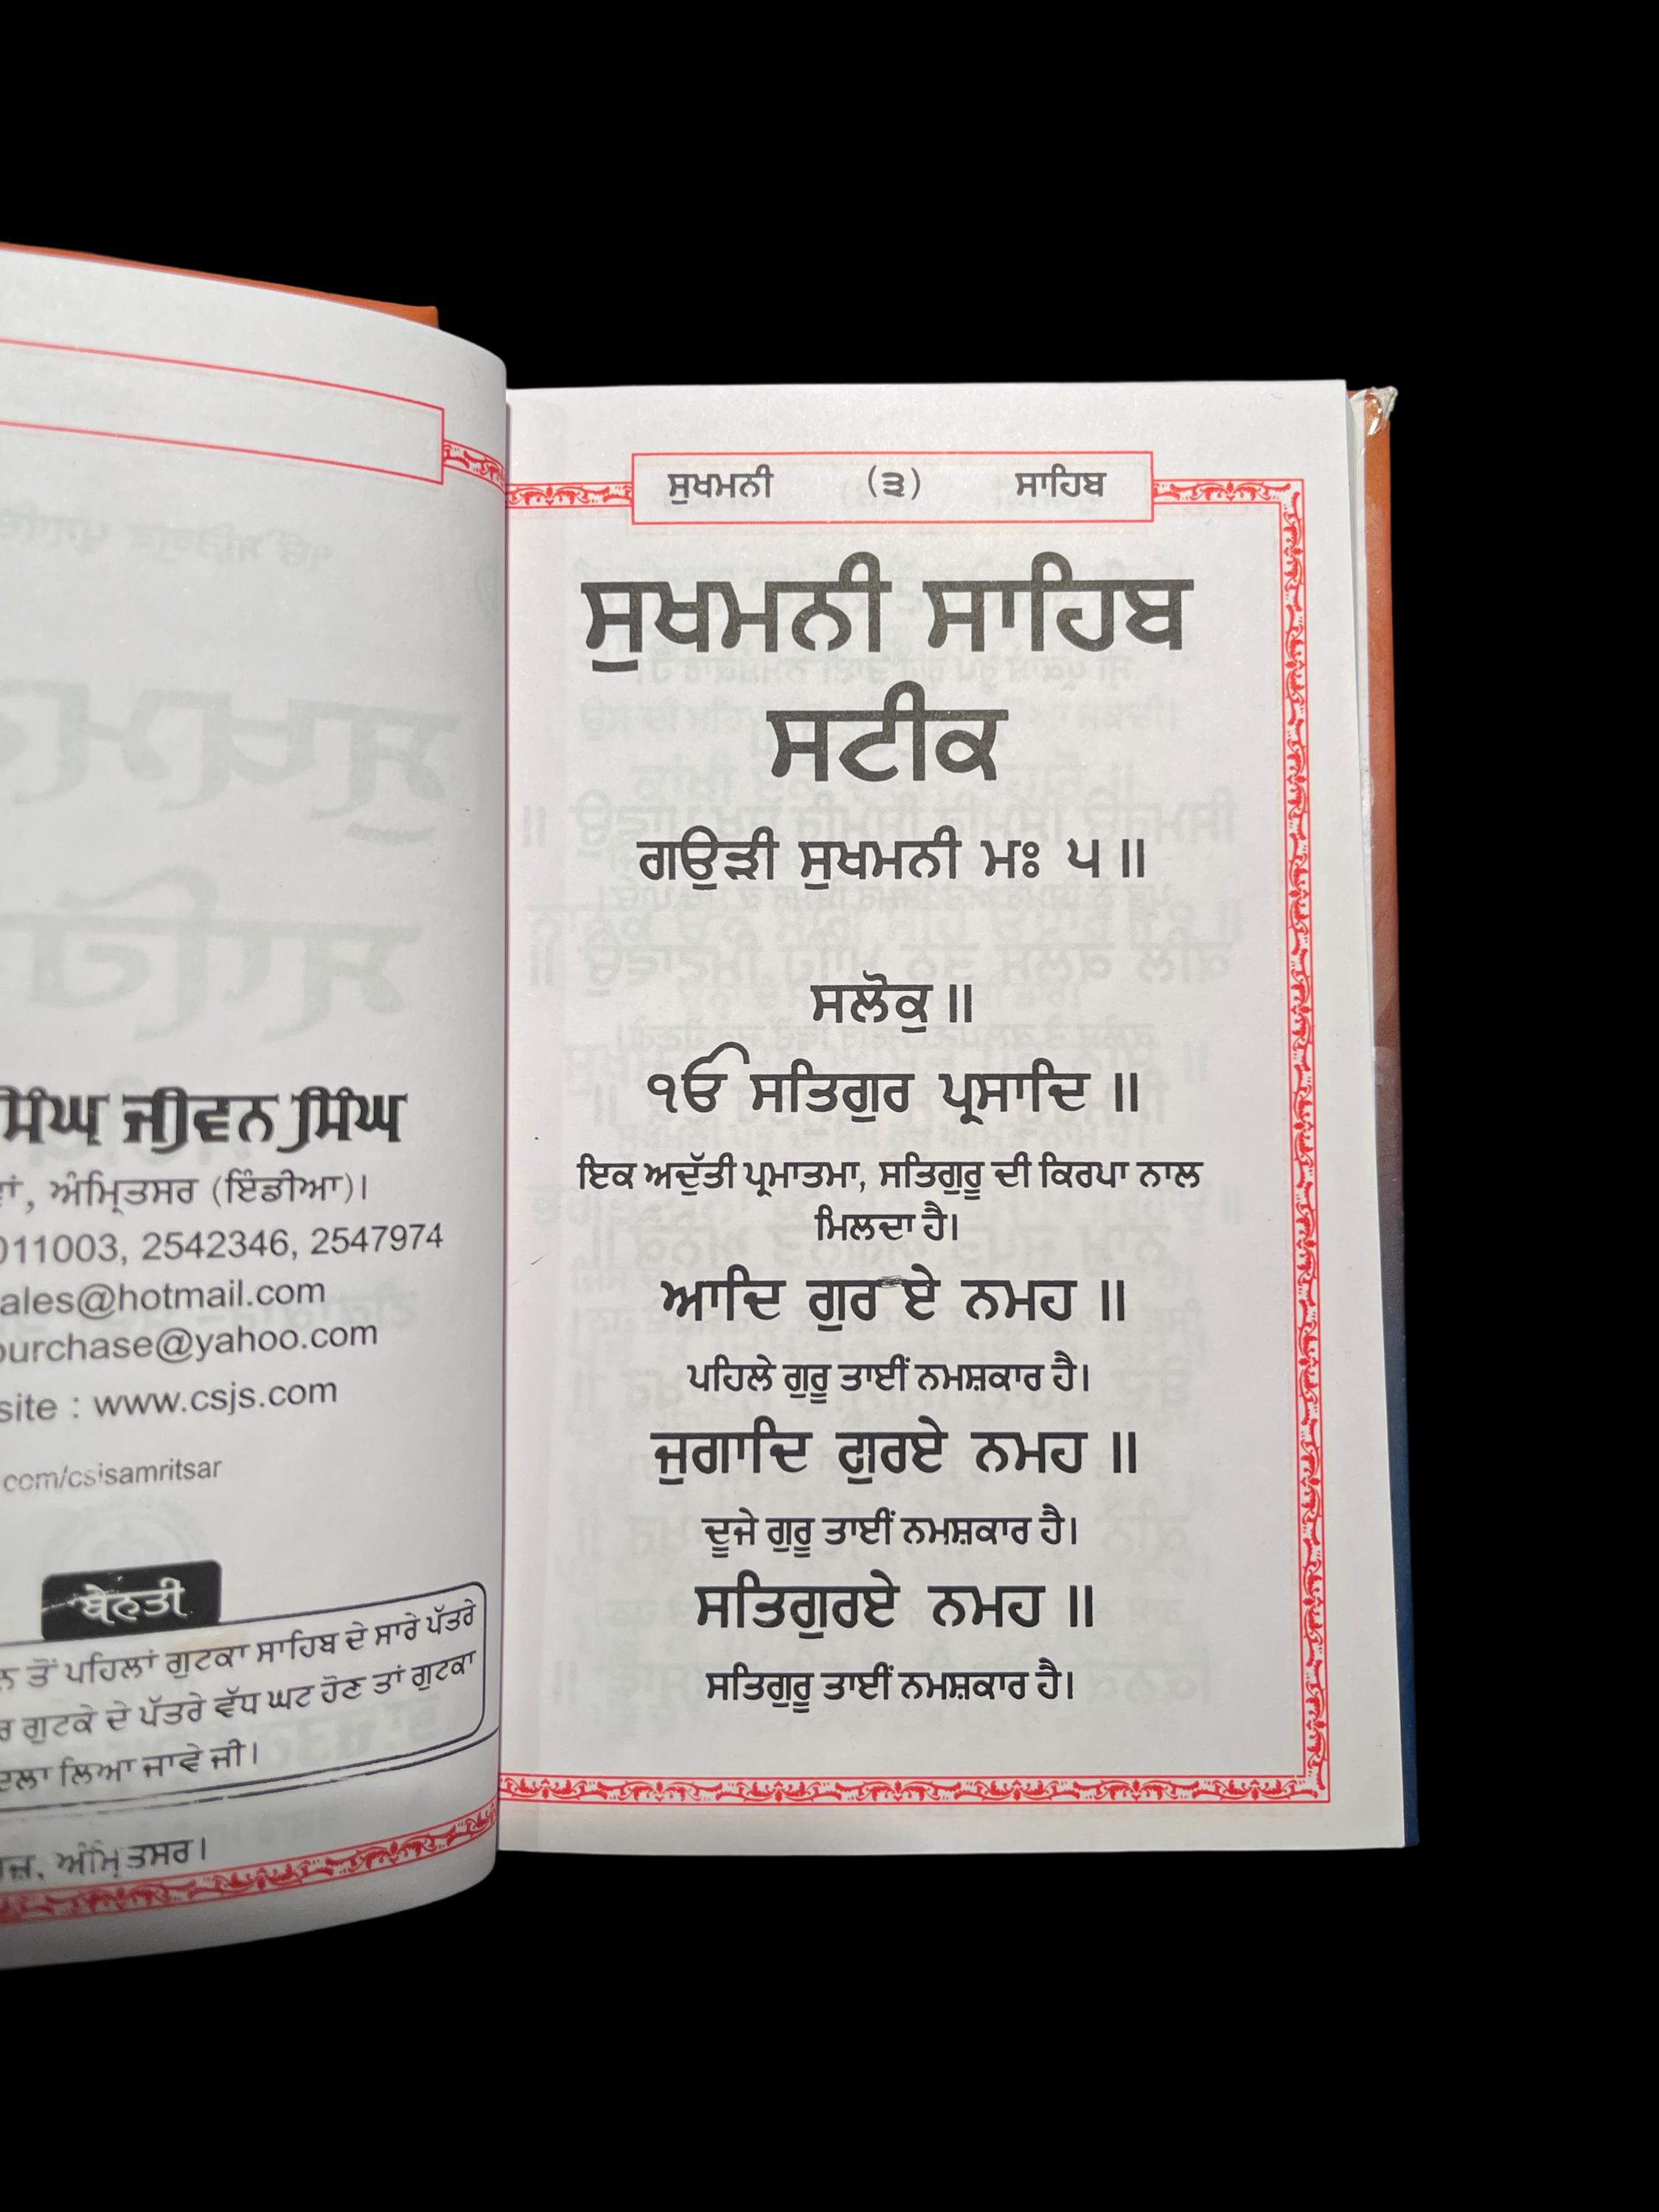 ਸਿੰਘ ਜੀਵਨ ਸਿੰਘ
ਅੰਮ੍ਰਿਤਸਰ (ਇੰਡੀਆ)।
011003, 2542346, 2547974
ales@hotmail.com
ourchase@yahoo.com
site : www.csjs.com
com/csjsamritsar
ਬੇਨਤੀ
ਤੋਂ ਪਹਿਲਾਂ ਗੁਟਕਾ ਸਾਹਿਬ ਦੇ ਸਾਰੇ ਪੱਤਰੇ
ਗੁਟਕੇ ਦੇ ਪੱਤਰੇ ਵੱਧ ਘਟ ਹੋਣ ਤਾਂ ਗੁਟਕਾ
ਲਿਆ ਜਾਵੇ ਜੀ।
ਅੰਮ੍ਰਿਤਸਰ।
ਸੁਖਮਨੀ (੩) ਸਾਹਿਬ
ਸੁਖਮਨੀ ਸਾਹਿਬ
ਸਟੀਕ
ਗਉੜੀ ਸੁਖਮਨੀ ਮਃ ੫ ॥
ਸਲੋਕੁ ॥
ੴ ਸਤਿਗੁਰ ਪ੍ਰਸਾਦਿ ॥
ਇਕ ਅਦੁੱਤੀ ਪ੍ਰਮਾਤਮਾ, ਸਤਿਗੁਰੂ ਦੀ ਕਿਰਪਾ ਨਾਲ
ਮਿਲਦਾ ਹੈ।
ਆਦਿ ਗੁਰ ਏ ਨਮਹ ॥
ਪਹਿਲੇ ਗੁਰੂ ਤਾਈਂ ਨਮਸ਼ਕਾਰ ਹੈ।
ਜੁਗਾਦਿ ਗੁਰਏ ਨਮਹ ॥
ਦੂਜੇ ਗੁਰੂ ਤਾਈਂ ਨਮਸ਼ਕਾਰ ਹੈ।
ਸਤਿਗੁਰਏ ਨਮਹ ॥
ਸਤਿਗੁਰੂ ਤਾਈਂ ਨਮਸ਼ਕਾਰ ਹੈ।